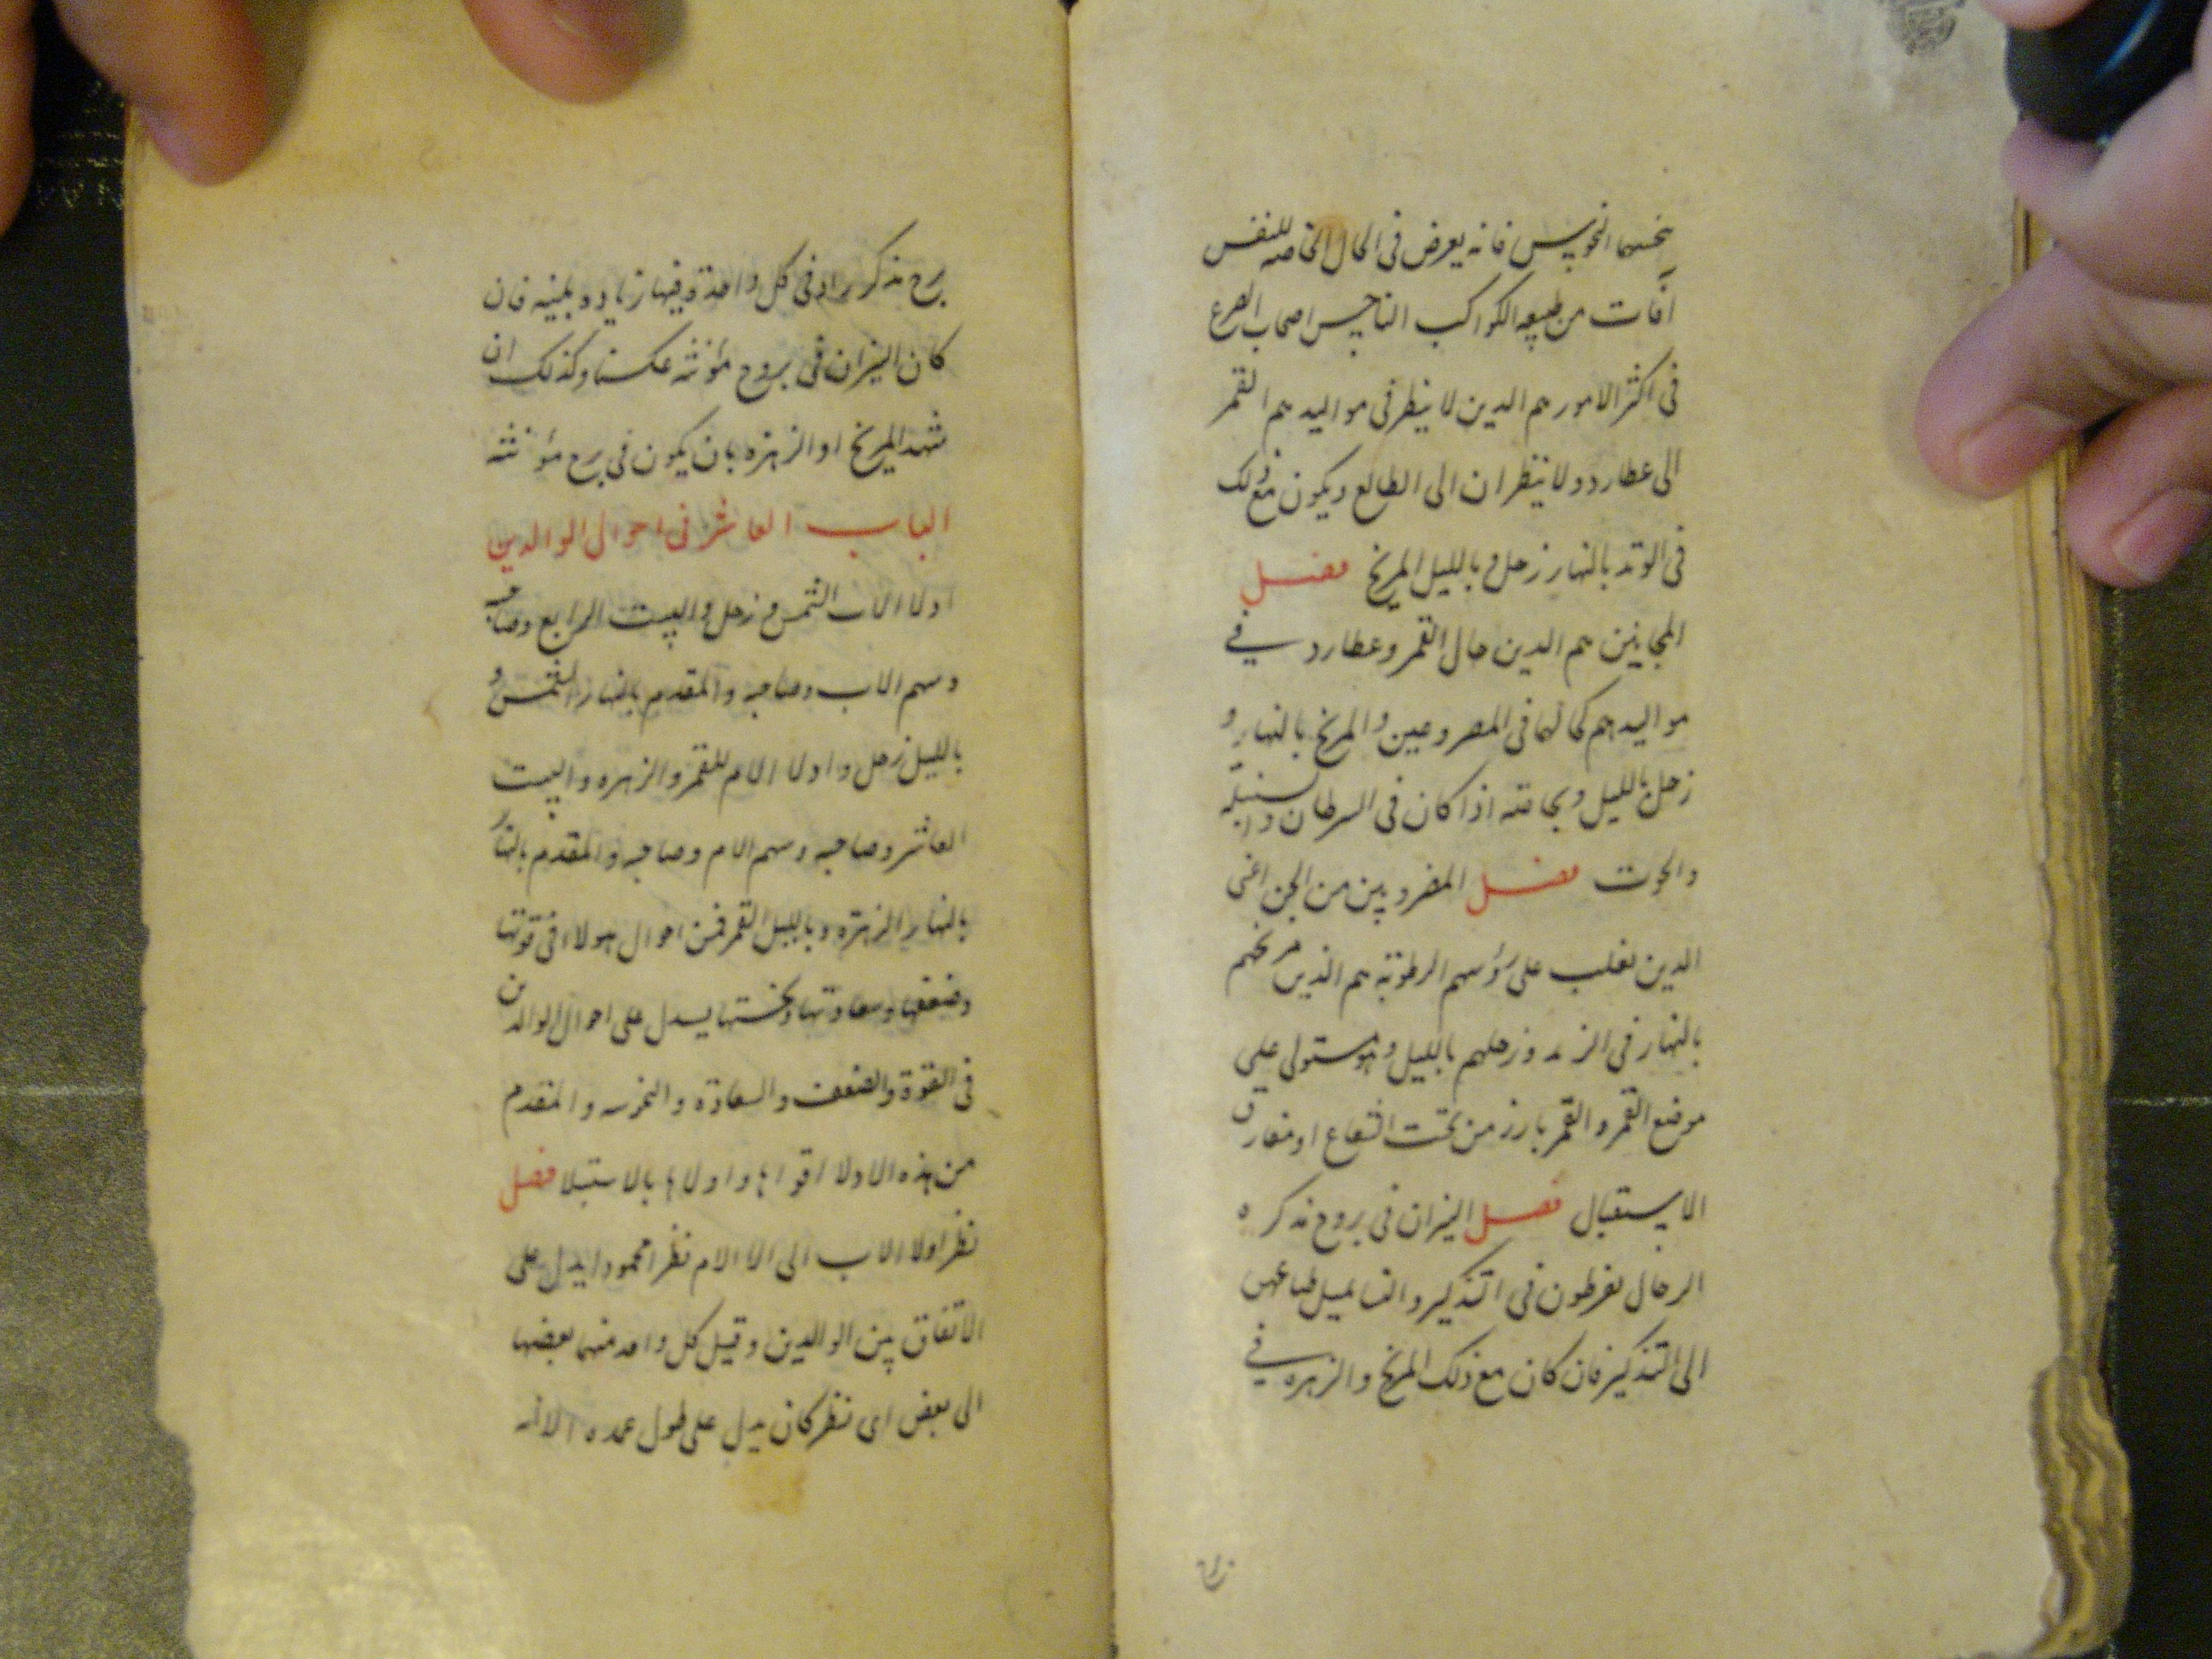 ينحسها النحوس فانه يعرض فى الحال الخاصه للنفس
آفات من طبيعه الكواكب الناحس اصحاب الصرع
فى اكثر الامور هم الدين لا ينظر فى مواليدهم القمر
الى عطارد ولا ينظران الى الطالع ويكون مع ذلك
فى الوتد بالنهار زحل و بالليل المريخ فصل
المجانين هم الدين حال القمر وعطارد في
مواليدهم كحالهما فى المصروعين والمريخ بالنهار و
زحل بالليل وبخاصة اذا كان فى السرطان والسنبلة
والحوت فصل من الجن اعنى
الدين تغلب على رؤسهم الرطوبة هم الذين مريخهم
بالنهار فى وزحلهم بالليل وهو مستولى على
موضع القمر والقمر بارز من تحت الشعاع او مفارق
الاستقبال فصل النيران فى بروج مذكره
الرجال يفرطون فى التذكير والنسا يميل طباعهن
الى التذكير فان كان مع ذلك المريخ والزهره في
برج مذكر فى كل واحدة فيها زياده بينه فان
كان النيران فى بروج مؤنثه عكسنا وكذلك ان
شهد المريخ او الزهره بان يكون فى برج مؤنثه
الباب العاشر فى احوال الوالدين
ادلا الاب الشمس و زحل والبيت الرابع وصاحبه
وسهم الاب وصاحبه والمقدم بالنهار الشمس و
بالليل زحل وادلا الام للقمر والزهره والبيت
العاشر وصاحبه وسهم الام وصاحبه والمقدم بالنهار
بالنهار الزهره وبالليل القمر فمن احوال هولاء فى قوتها
وضعفها وسعادتها ونحستها يسدل على احوال الوالدين
فى القوة والضعف والسعادة والنحوسه والمقدم
من هذه الادلا اقواها واولاها بالاستيلا فصل
نظر ادلا الاب الى ادلا الام نظرا محمودا يدل على
الاتفاق بين الوالدين وقيل كل واحد منهما بعضها
الى بعض اى نظر كان يدل على طول الا انه